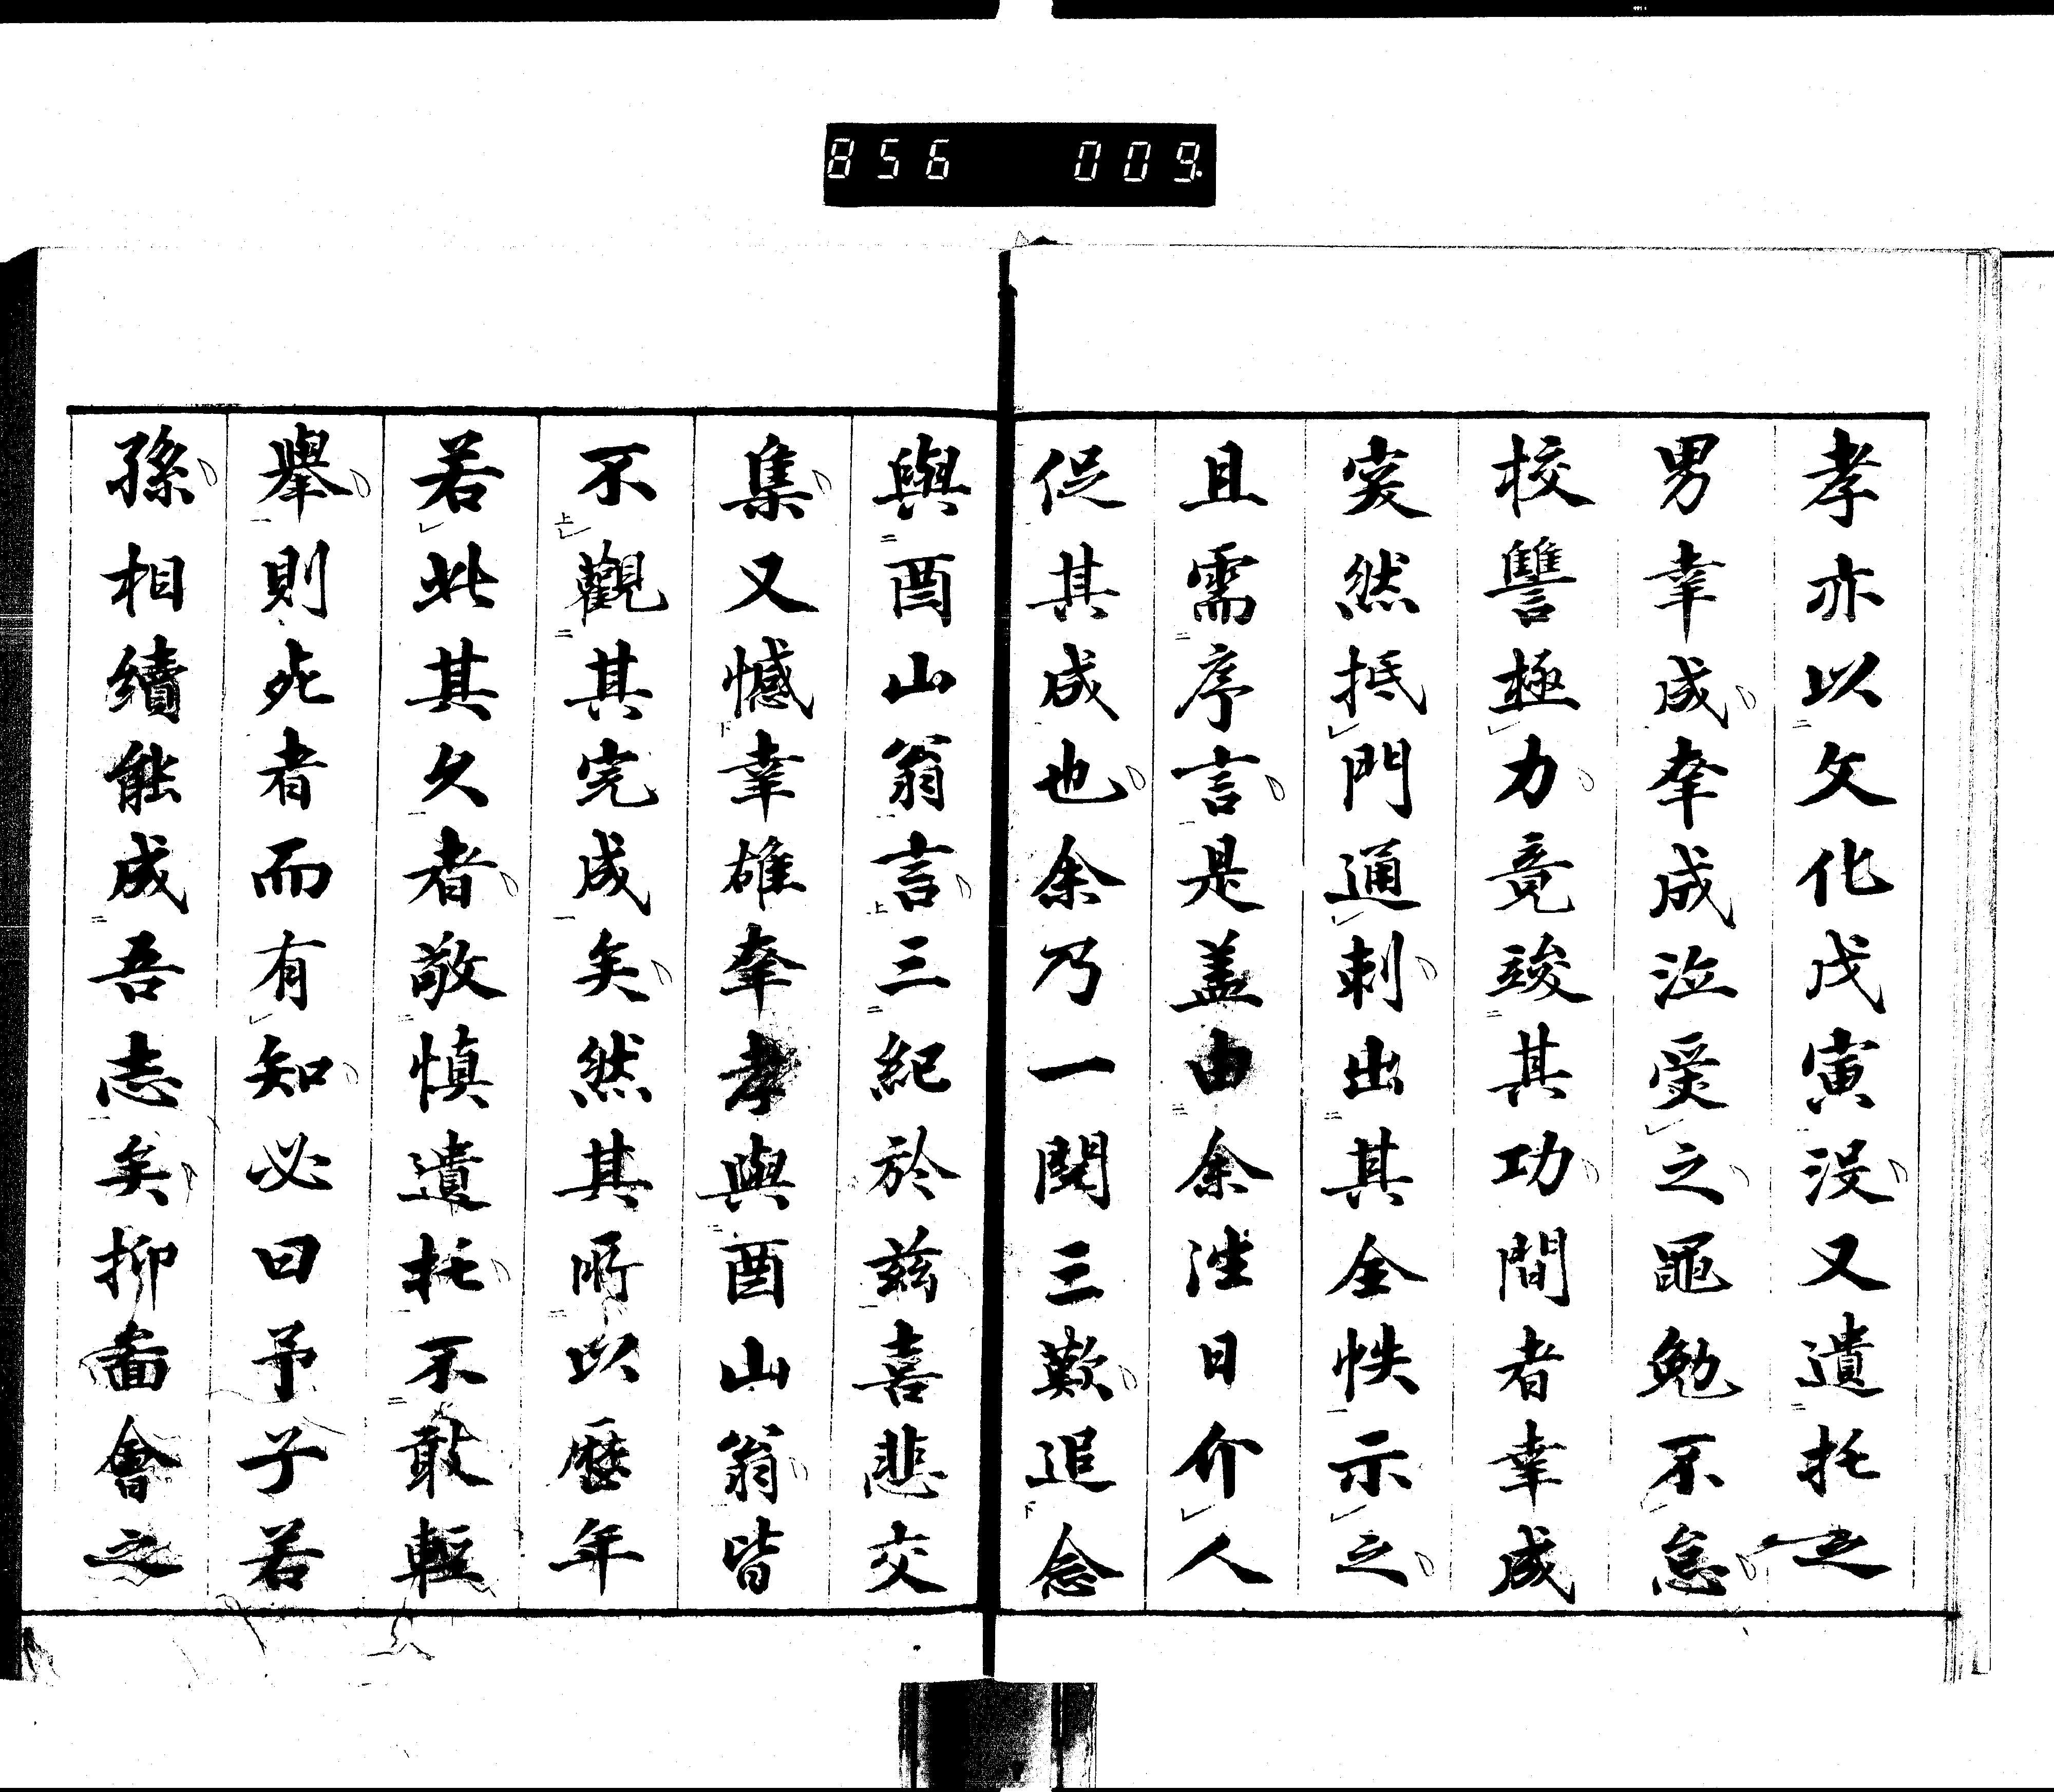 孝亦以文化戊寅没又遺托之
男幸成幸成泣受之黽勉不怠
校讐極力竟竣其功間者幸成
突然抵門通刺出其全帙示之
且需序言是盖由余往日介人
促其成也余乃一閲三歎追念
與酉山翁言三紀於兹喜悲交
集又憾幸雄幸孝與酉山翁皆
不觀其完成矣然其所以歴年
若此其久者敬慎遺托不敢輕
舉則死者而有知必曰予子若
孫相續能成吾志矣抑啚會之
856 009